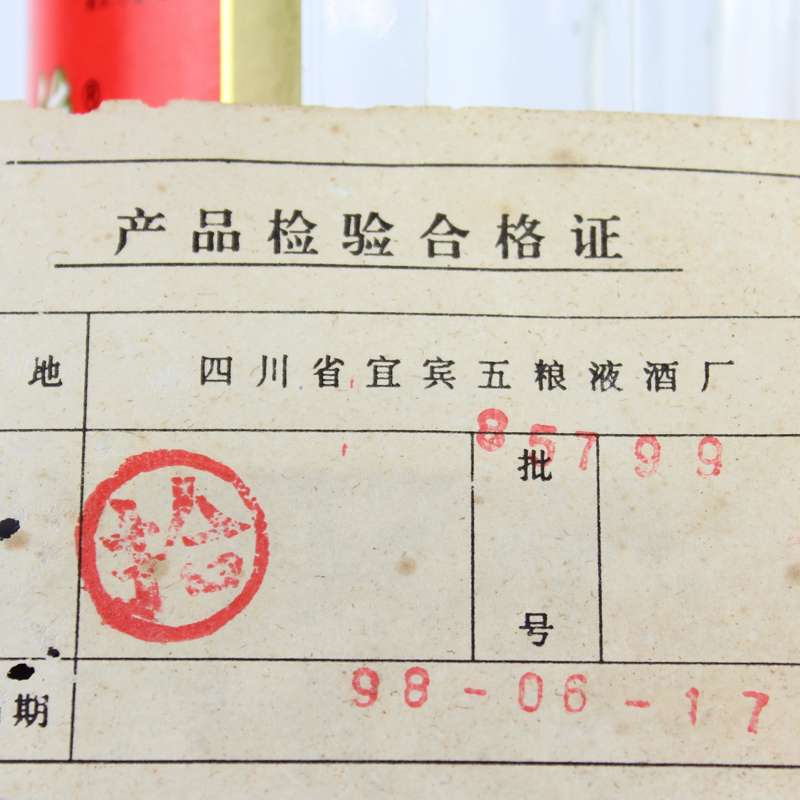 产品检验合格证
地 四川省宜宾五粮液酒厂
85799
批号
期 98-06-17